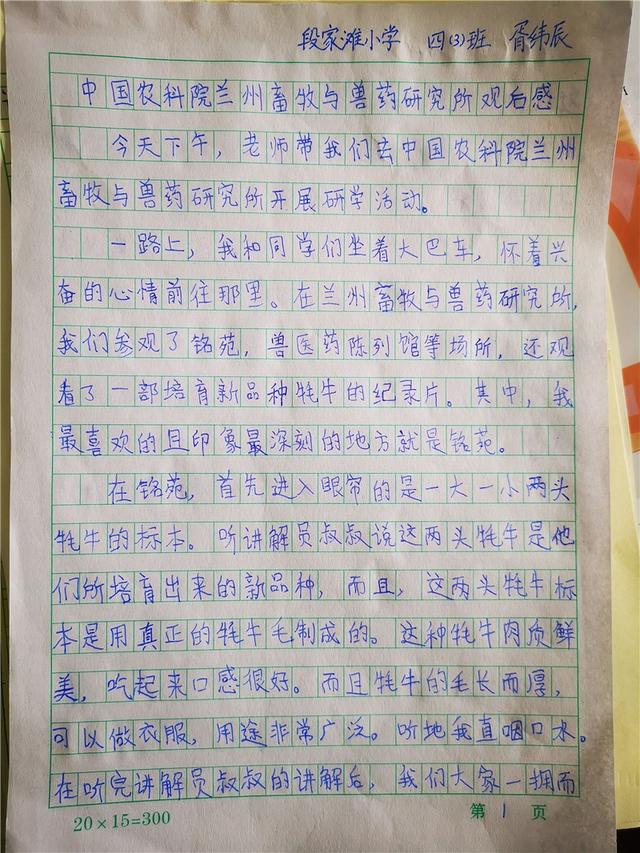 段家滩小学 四(3)班 胥纬辰
中国农科院兰州畜牧与兽药研究所观后感
今天下午，老师带我们去中国农科院兰州
畜牧与兽药研究所开展研学活动。
一路上，我和同学们坐着大巴车，怀着兴
奋的心情前往那里。在兰州畜牧与兽药研究所，
我们参观了铭苑，兽医药陈列馆等场所，还观
看了一部培育新品种牦牛的纪录片。其中，我
最喜欢的且印象最深刻的地方就是铭苑。
在铭苑，首先进入眼帘的是一大一小两头
牦牛的标本。听讲解员叔叔说这两头牦牛是他
们所培育出来的新品种，而且，这两头牦牛标
本是用真正的牦牛毛制成的。这种牦牛肉质鲜
美，吃起来口感很好。而且牦牛的毛长而厚，
可以做衣服，用途非常广泛。听地我直咽口水。
在听完讲解员叔叔的讲解后，我们大家一拥而
20×15=300 第 1 页